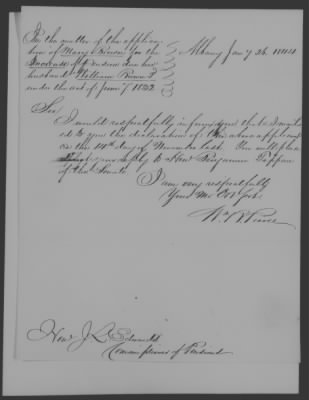 In the matter of the applica
tion of Mary Pierce for the
Increase of Pension due her
husband William Pierce
under the act of June 7 1832
Albany Jany 26 1844
Sir
I would respectfully inform you that I mailed
to you the declaration of the above applicant
on the 14th day of November last. You will please
your reply to Hon. Benjamin Tappan
of the Senate
I am very respectfully
Your Mo Obt Svt.
Wm Pierce
Hon J L Edwards
Commissioner of Pensions